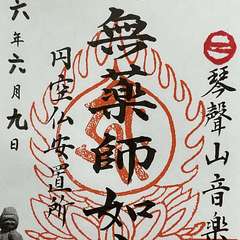 琴聲山音楽
無薬師如
円空仏安置所
六年六月九日